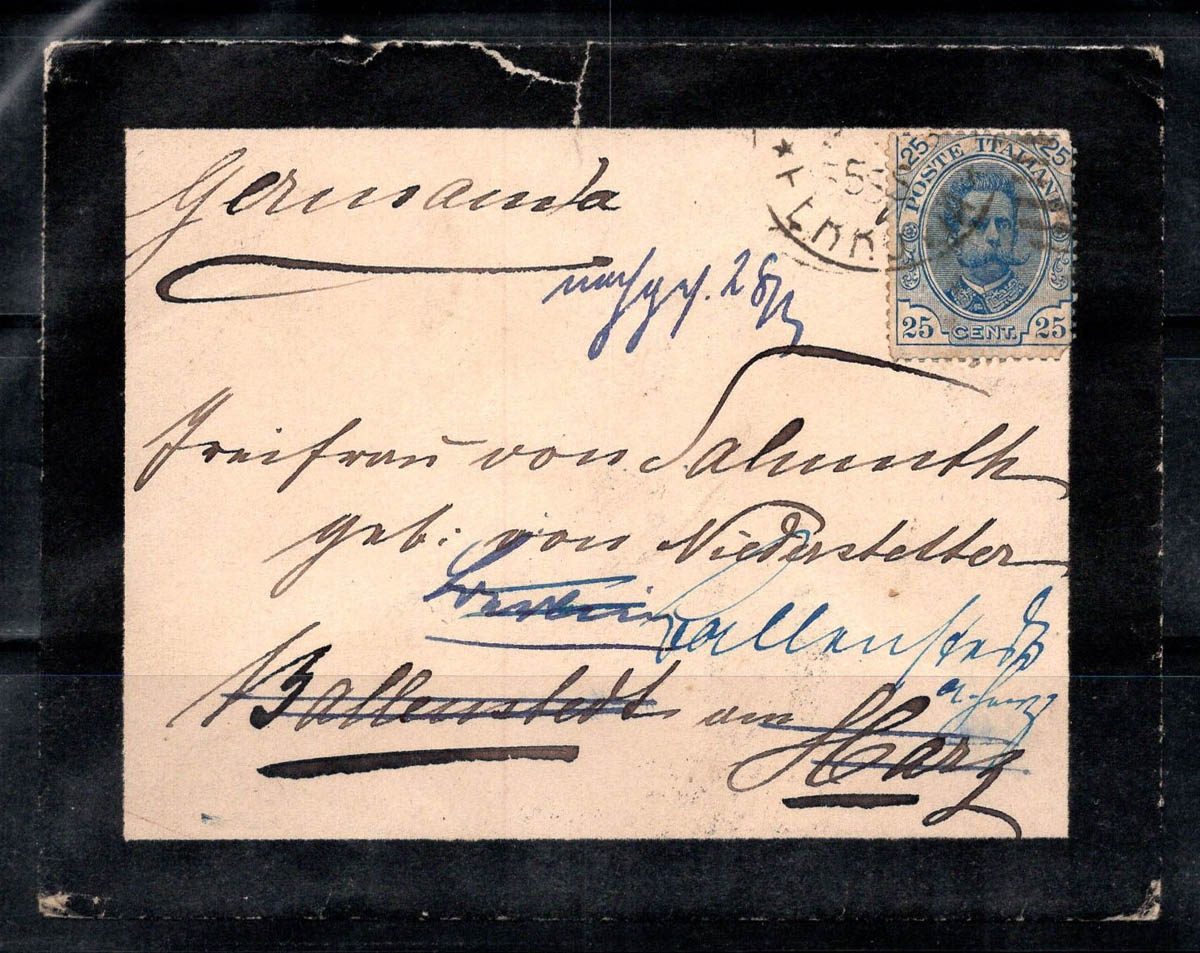 Germania
nachges. 28/
25 POSTE ITALIANE 25
25 CENT. 25
Freifrau von Salmuth
geb: von Niederstetter
Ballenstedt
a. Harz
Ballenstedt am Harz